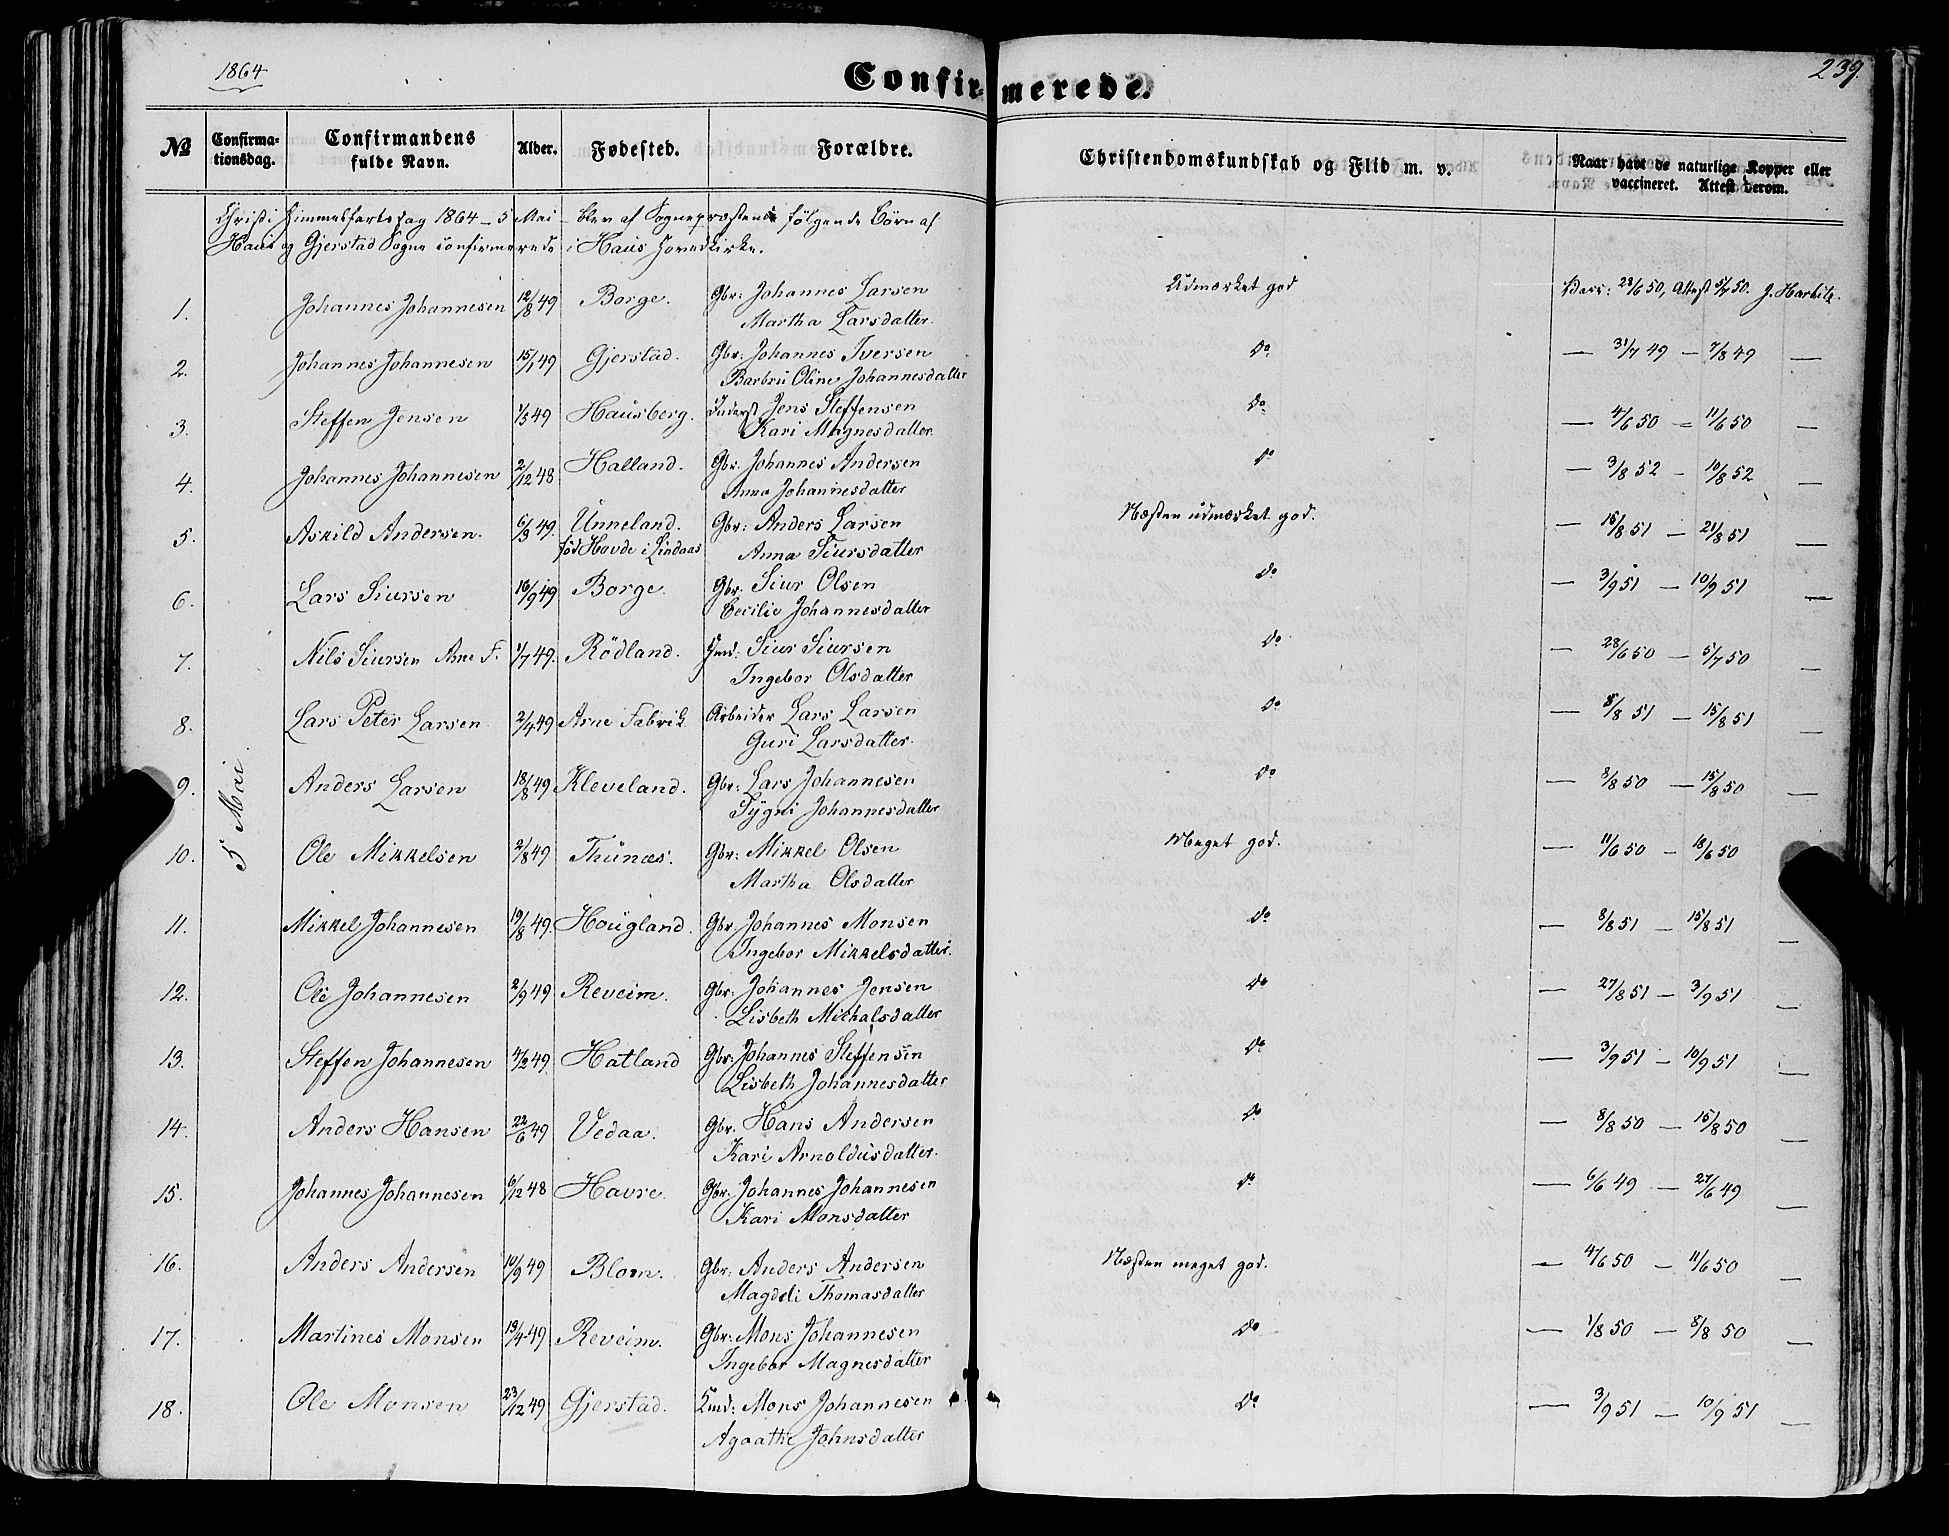 1864
Confirmerede.
239
№ Confirmationsdag. Confirmandens fulde Navn. Alder. Fødested. Forældre. Christendomskundskab og Flid m. v. Naar havt de naturlige Kopper eller vaccineret. Attest derom.
Christi Himmelfartsdag 1864 - 5 Mai - blev af Sognepræsten følgende Børn af
Haus og Gjerstad Sogne confirmerede i Haus Hovedkirke.
5 Mai
1. Johannes Johannesen 12/8 49 Borge. Gbr: Johannes Larsen Udmærket god Vacc: 28/6 50, Attest 5/7 50. J.
Martha Larsdatter.
2. Johannes Johannesen 15/1 49 Gjerstad. Gbr: Johannes Iversen Do — 31/7 49 — 7/8 49 —
Barbru Oline Johannesdatter
3. Steffen Jensen 1/5 49 Hausberg. Inderst Jens Steffensen Do — 4/6 50 = 11/6 50 —
Kari Magnesdatter.
4. Johannes Johannesen 2/12 48 Halland. Gbr: Johannes Andersen Do — 3/8 52 — 10/8 52 —
Anna Johannesdatter
5. Askild Andersen. 6/3 49. Unneland. Gbr: Anders Larsen Næsten udmærket god. — 15/8 51 — 21/8 51 —
fød Hovde i Lindaas Anna Siursdatter
6. Lars Siursen 16/9 49 Borge. Gbr: Siur Olsen Do — 3/9 51 — 10/9 51 —
Cecilie Johannesdatter
7. Nils Siursen Arne F. 1/7 49. Rödland. Siur Siursen Do — 28/6 50 — 5/7 50 —
Ingebor Olsdatter
8. Lars Peter Larsen 2/4 49 Arne Fabrik Arbeider Lars Larsen Do — 8/8 51 — 15/8 51 —
Guri Larsdatter.
9. Anders Larsen 18/8 49 Kleveland. Gbr: Lars Johannesen Do — 8/8 50 — 15/8 50 —
Sygni Johannesdatter
10. Ole Mikkelsen 2/8 49 Thunæs. Gbr: Mikkel Olsen Meget god. — 11/6 50 — 18/6 50
Martha Olsdatter
11. Mikkel Johannesen 19/8 49. Hougland. Gbr. Johannes Monsen Do — 8/8 51 — 15/8 51 —
Ingebor Mikkelsdatter.
12. Ole Johannesen 2/9 49 Reveim. Gbr: Johannes Jensen Do — 27/8 51 — 3/9 51 —
Lisbeth Michalsdatter
13. Steffen Johannesen 4/2 49. Hatland Gbr: Johannes Steffensen Do — 3/9 51 — 10/9 51 —
Lisbeth Johannesdatter
14. Anders Hansen 22/6 49 Vedaa. Gbr. Hans Andersen Do — 8/8 50 — 15/8 50 —
Kari Arnoldusdatter.
15. Johannes Johannesen 6/12 48 Havre. Gbr. Johannes Johannesen Do — 6/6 49 — 27/6 49 —
Kari Monsdatter
16. Anders Andersen 10/9 49 Blom. Gbr: Anders Andersen Næsten meget god. — 4/6 50 — 11/6 50 —
Magdeli Thomasdatter
17. Martines Monsen 13/4 49. Reveim. Gbr: Mons Johannesen Do — 1/8 50 — 8/8 50 —
Ingebor Magnesdatter
18. Ole Monsen 23/12 49 Gjerstad. Mons Johannesen Do — 3/9 51 — 10/9 51 —
Agaathe Johnsdatter